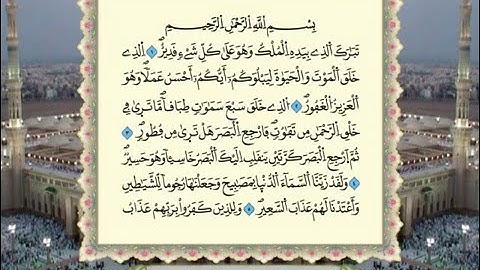 بِسْمِ اللَّهِ الرَّحْمَٰنِ الرَّحِيمِ
تَبَٰرَكَ ٱلَّذِى بِيَدِهِ ٱلْمُلْكُ وَهُوَ عَلَىٰ كُلِّ شَىْءٍ قَدِيرٌ ١ ٱلَّذِى
خَلَقَ ٱلْمَوْتَ وَٱلْحَيَوٰةَ لِيَبْلُوَكُمْ أَيُّكُمْ أَحْسَنُ عَمَلًا وَهُوَ
ٱلْعَزِيزُ ٱلْغَفُورُ ٢ ٱلَّذِى خَلَقَ سَبْعَ سَمَٰوَٰتٍ طِبَاقًا مَّا تَرَىٰ فِى
خَلْقِ ٱلرَّحْمَٰنِ مِن تَفَٰوُتٍ فَٱرْجِعِ ٱلْبَصَرَ هَلْ تَرَىٰ مِن فُطُورٍ ٣
ثُمَّ ٱرْجِعِ ٱلْبَصَرَ كَرَّتَيْنِ يَنقَلِبْ إِلَيْكَ ٱلْبَصَرُ خَاسِئًا وَهُوَ حَسِيرٌ
٤ وَلَقَدْ زَيَّنَّا ٱلسَّمَآءَ ٱلدُّنْيَا بِمَصَٰبِيحَ وَجَعَلْنَٰهَا رُجُومًا لِّلشَّيَٰطِينِ
وَأَعْتَدْنَا لَهُمْ عَذَابَ ٱلسَّعِيرِ ٥ وَلِلَّذِينَ كَفَرُوا۟ بِرَبِّهِمْ عَذَابُ